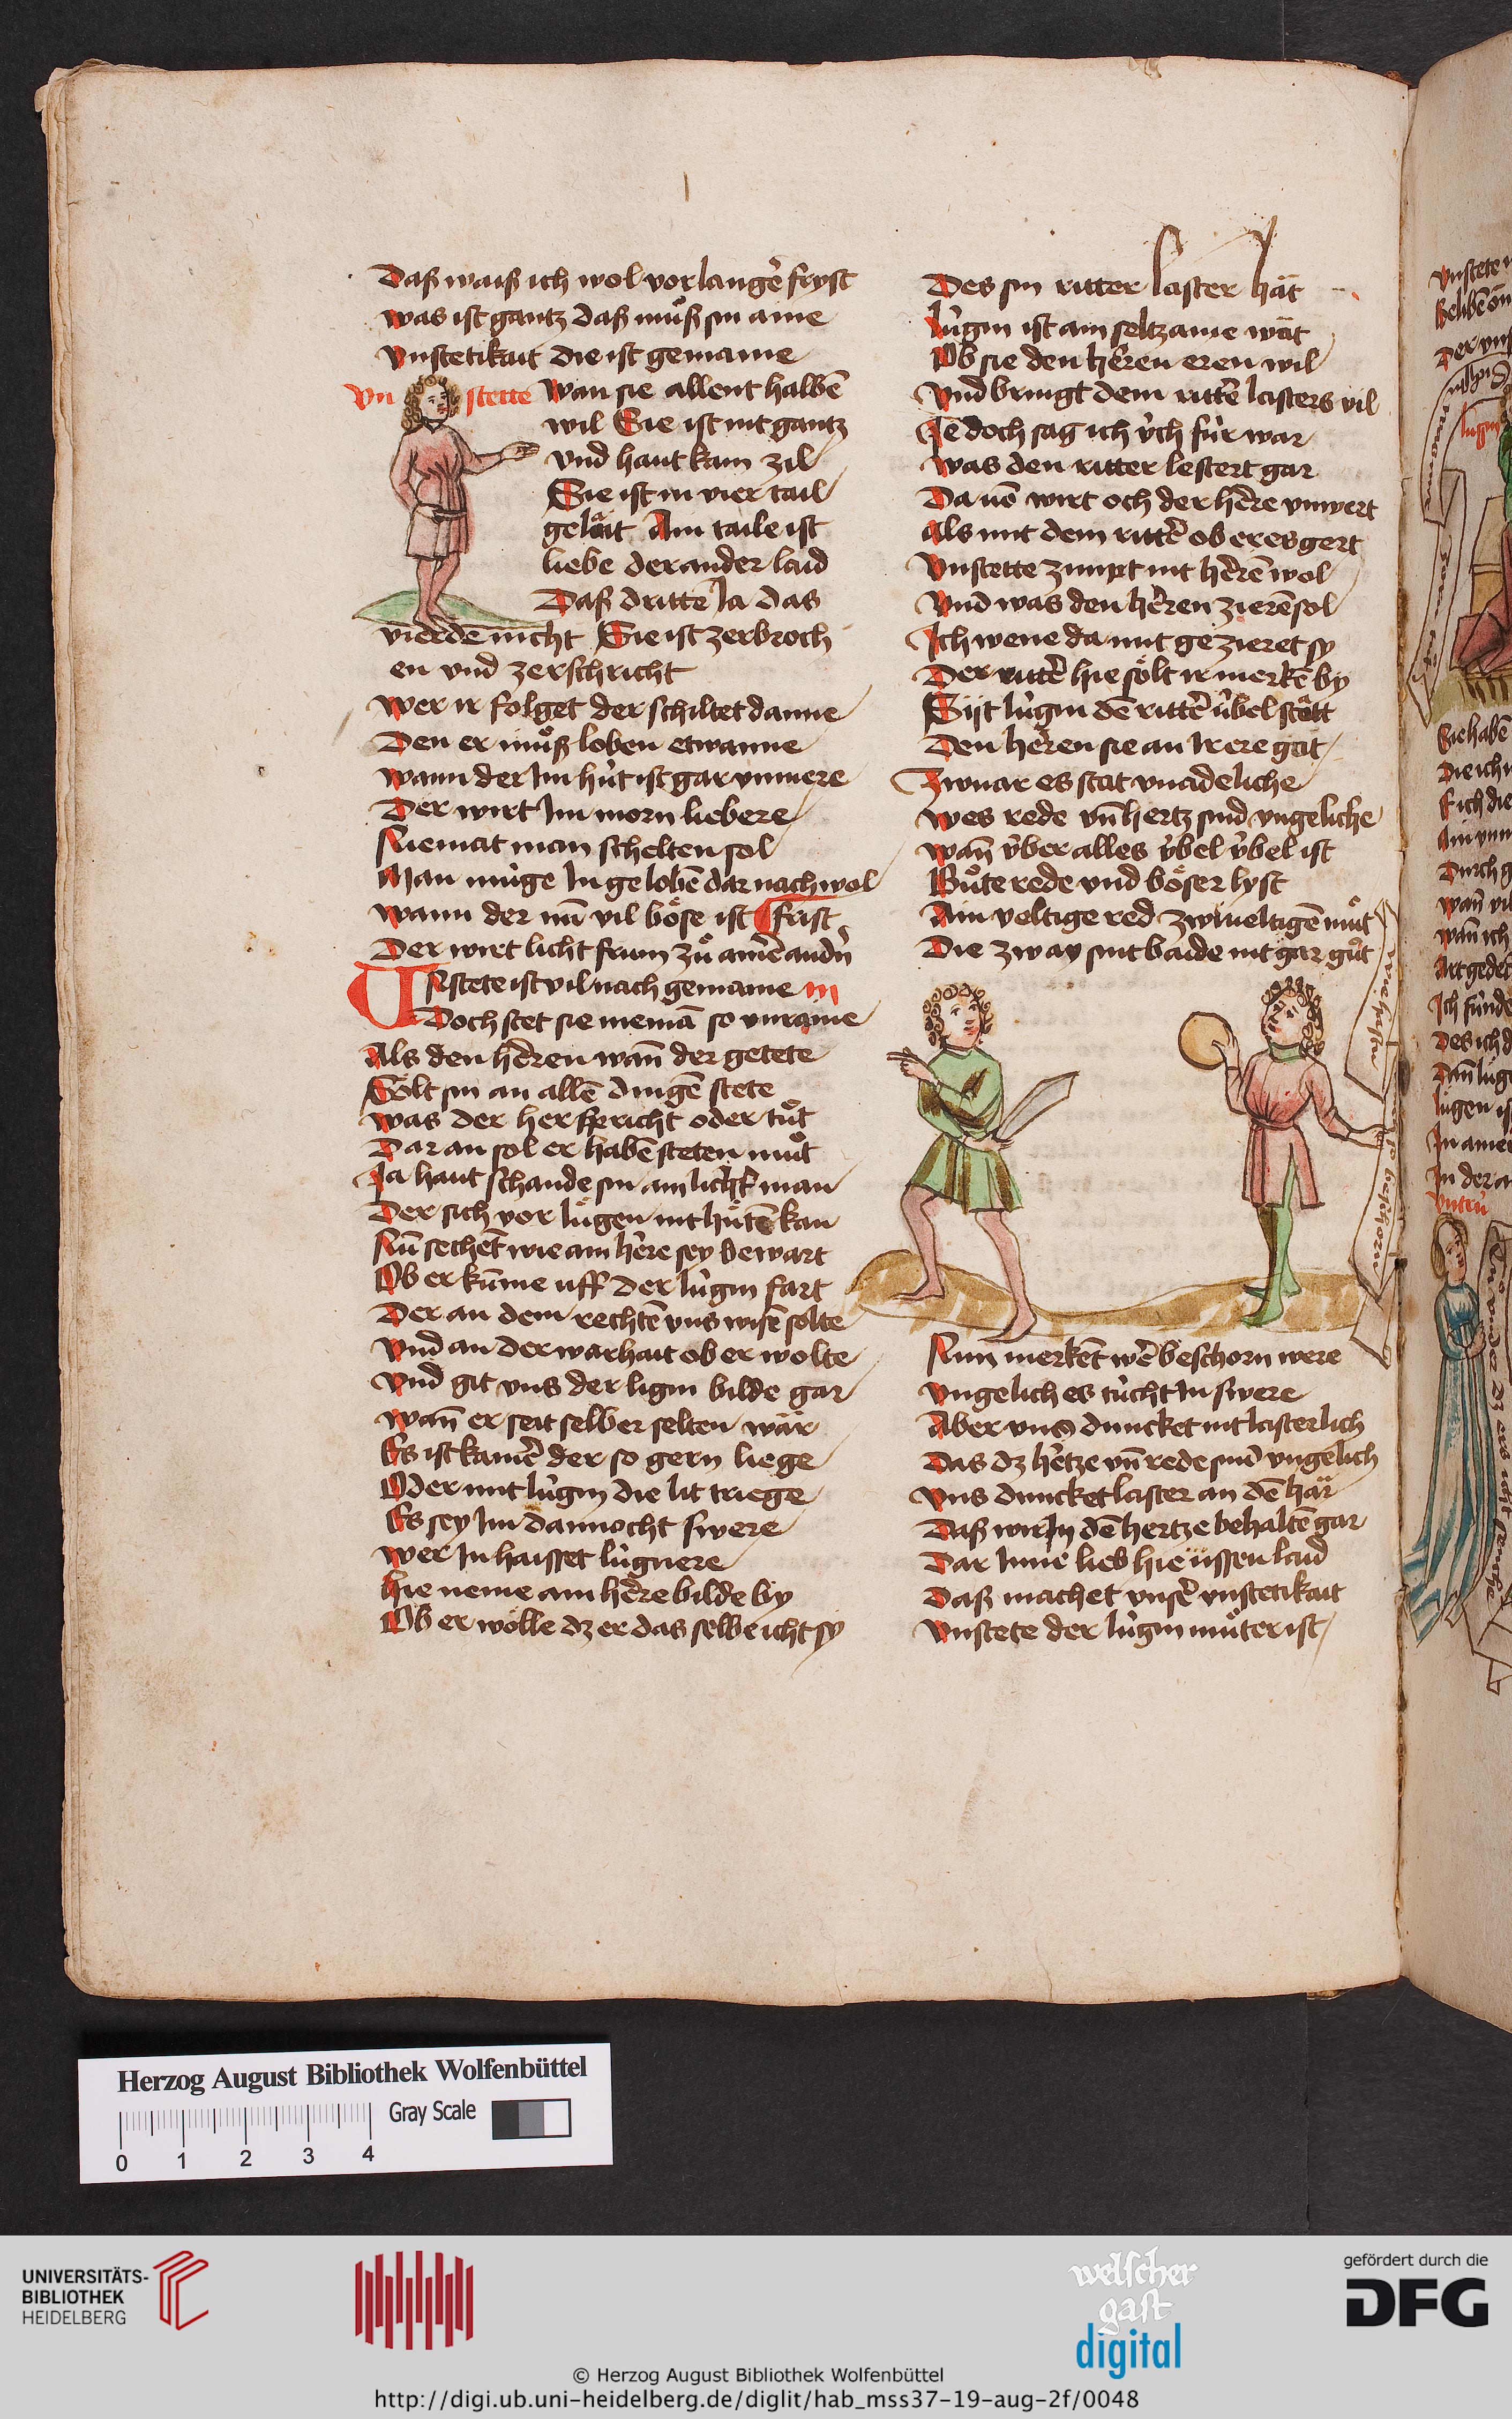 Daß waiß ich wol vor langer̃ fryst
was ist gantz daß muͦß sin aine
Vnstetikait die ist gemaine
Vn stette Wan sie allent halbẽ
wil Sie ist nit gantz
vnd haut kain zil
Sie ist in vier tail
gelait Ain taile ist
liebe der ander laid
Daß dritte Ja das
vierde nicht Sie ist zerbroch
en vnd zerschricht
Wer ir folget der schiltet danne
Den er muͦß loben etwanne
Wann der Im hút ist gar vnmere
Der wirt Im morn liebere
Niemat man schelten sol
Man múge In gelobẽ dar nach wol
Wann der nũ vil böse ist frist
Der wirt licht frum zuͦ amẽ andñ
Vnstete ist vil nach gemaine in
Doch stet sie niemã so vnraine
Als den heren wañ der getete
Sölt sin an allẽ dingẽ stete
Was der her spricht oder tuͦt
Dar an sol er habẽ steten muͦt
Ja haut schande sin ain licht man
Der sich vor lúgen nit hútẽ kan
Nũ sechet wie ain here sey bewart
Ob er kũme uff der lúgin fart
Der an dem rechtẽ vns wisẽ solte
Vnd an der warhait ob er wolte
Vnd git vns der ligin bilde gar
Wañ er seit selber selten wär
Es ist kainer̃ der so gern liege
Oder mit lúgin die lit triege
Es sey Im dannocht swere
Wer In haisset lúgnere
Hie neme ain here bilde by
Ob er wölle dz er das selbe icht sy
Des sin ritter laster hät
Lúgin ist ain seltzame wät
Ob sie den heren eren wil
Vnd bringt dem ritter̃ lasters vil
Je doch sag ich v́ch fúr war
Was den ritter lestert gar
Da uõ wirt och der here vnwert
Als mit dem ritter̃ ob er es gert
Vnstette zimpt nit herẽ wol
Vnd was den heren zierẽ sol
Ich wene da mit gezieret sy
Der ritter̃ hie sölt ir merkẽ by
Sijt lúgin dẽ ritter̃ úbel stätt
Den heren sie an Ir ere gät
Zwuar es stat vnadeliche
Wes rede vñ hertz sind vngeliche
Wañ v́ber alles v́bel v́bel ist
Guͦte rede vnd böser lyst
Ain veltige red zwiueltigẽ muͦt
Die zway sint baide nit gar guͦt
Nun merkẽt wer̃ beschorn were
Vngelich es túcht In swere
Aber vns duncket nit lasterlich
Das dz hertze vñ rede sind vngelich
Vns duncket laster an dẽ här
Daß wir In dẽ hertze behaltẽ gar
Dar Inne lieb hie ússen laid
Daß machet vnser̃ vnstetikait
Vnstete der lúgin muͦter ist
Herzog August Bibliothek Wolfenbüttel
Gray Scale
0 1 2 3 4
UNIVERSITÄTS-
BIBLIOTHEK
HEIDELBERG
welscher
gast
digital
gefördert durch die
DFG
© Herzog August Bibliothek Wolfenbüttel
http://digi.ub.uni-heidelberg.de/diglit/hab_mss37-19-aug-2f/0048